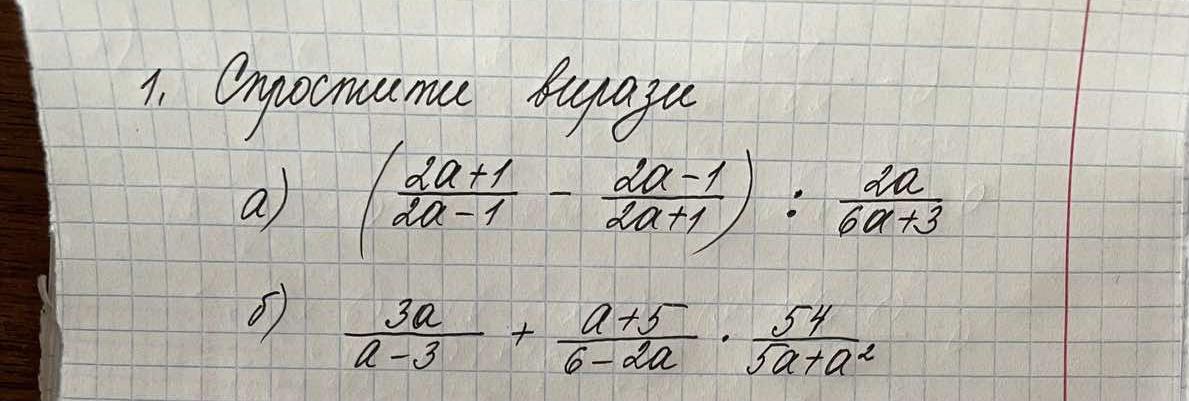 1. Спростити вирази
а) ((2a+1)/(2a-1) - (2a-1)/(2a+1)) : 2a/(6a+3)
б) 3a/(a-3) + (a+5)/(6-2a) · 54/(5a+a²)